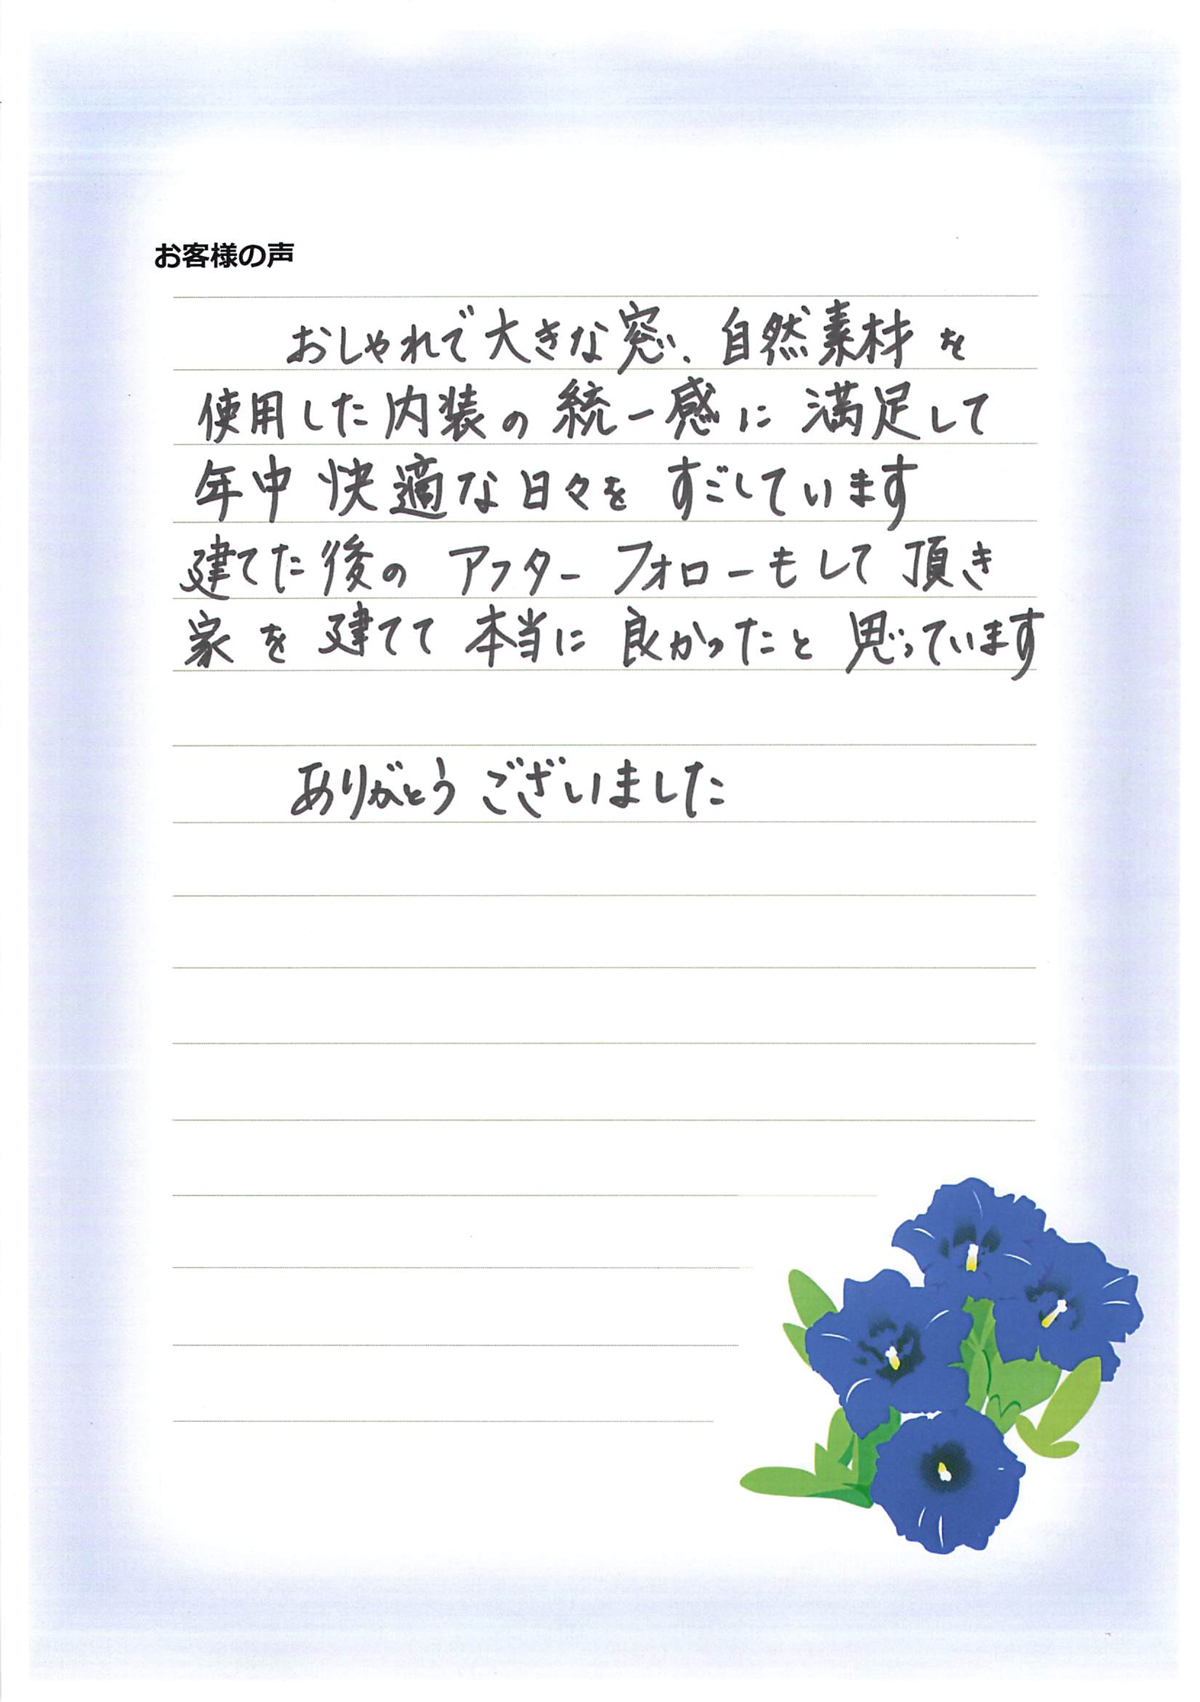 お客様の声
おしゃれで大きな窓、自然素材を
使用した内装の統一感に満足して
年中快適な日々をすごしています
建てた後のアフターフォローもして頂き
家を建てて本当に良かったと思っています
ありがとうございました